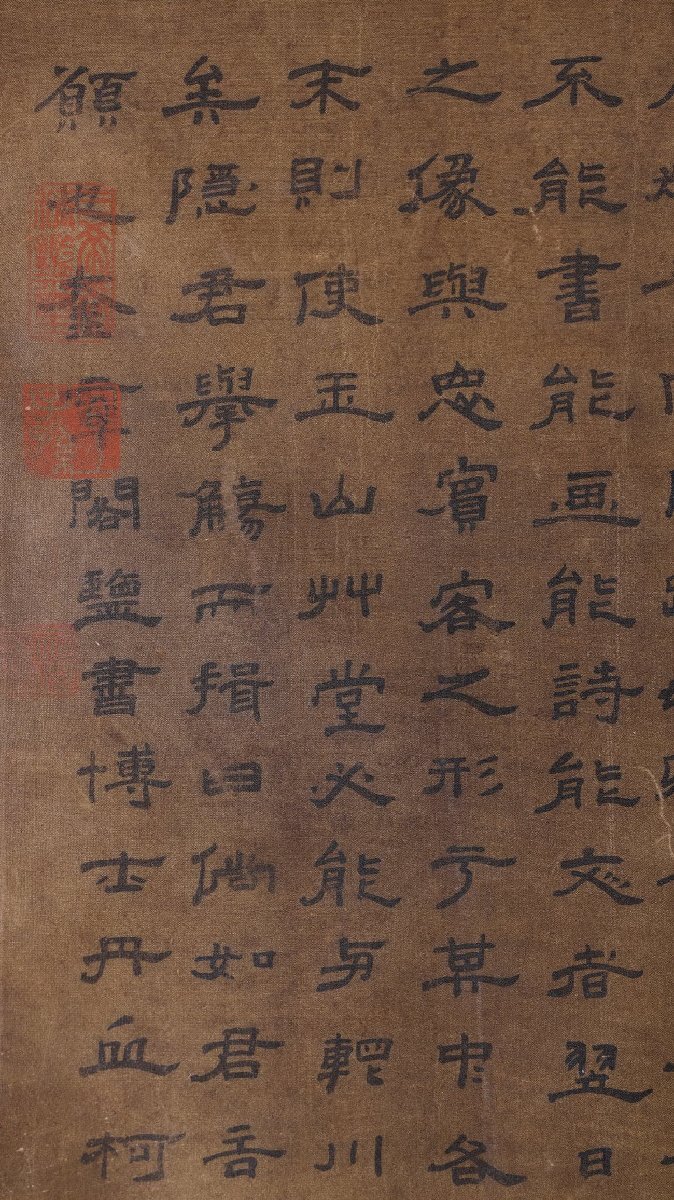 不能書能画能詩能文者翌日
之像與忠賓客之形于其中各
末則使玉山艸堂必能与輞川
矣隱君擧觴而揖曰倘如君言
願也奎章閣鑒書博士丹丘柯